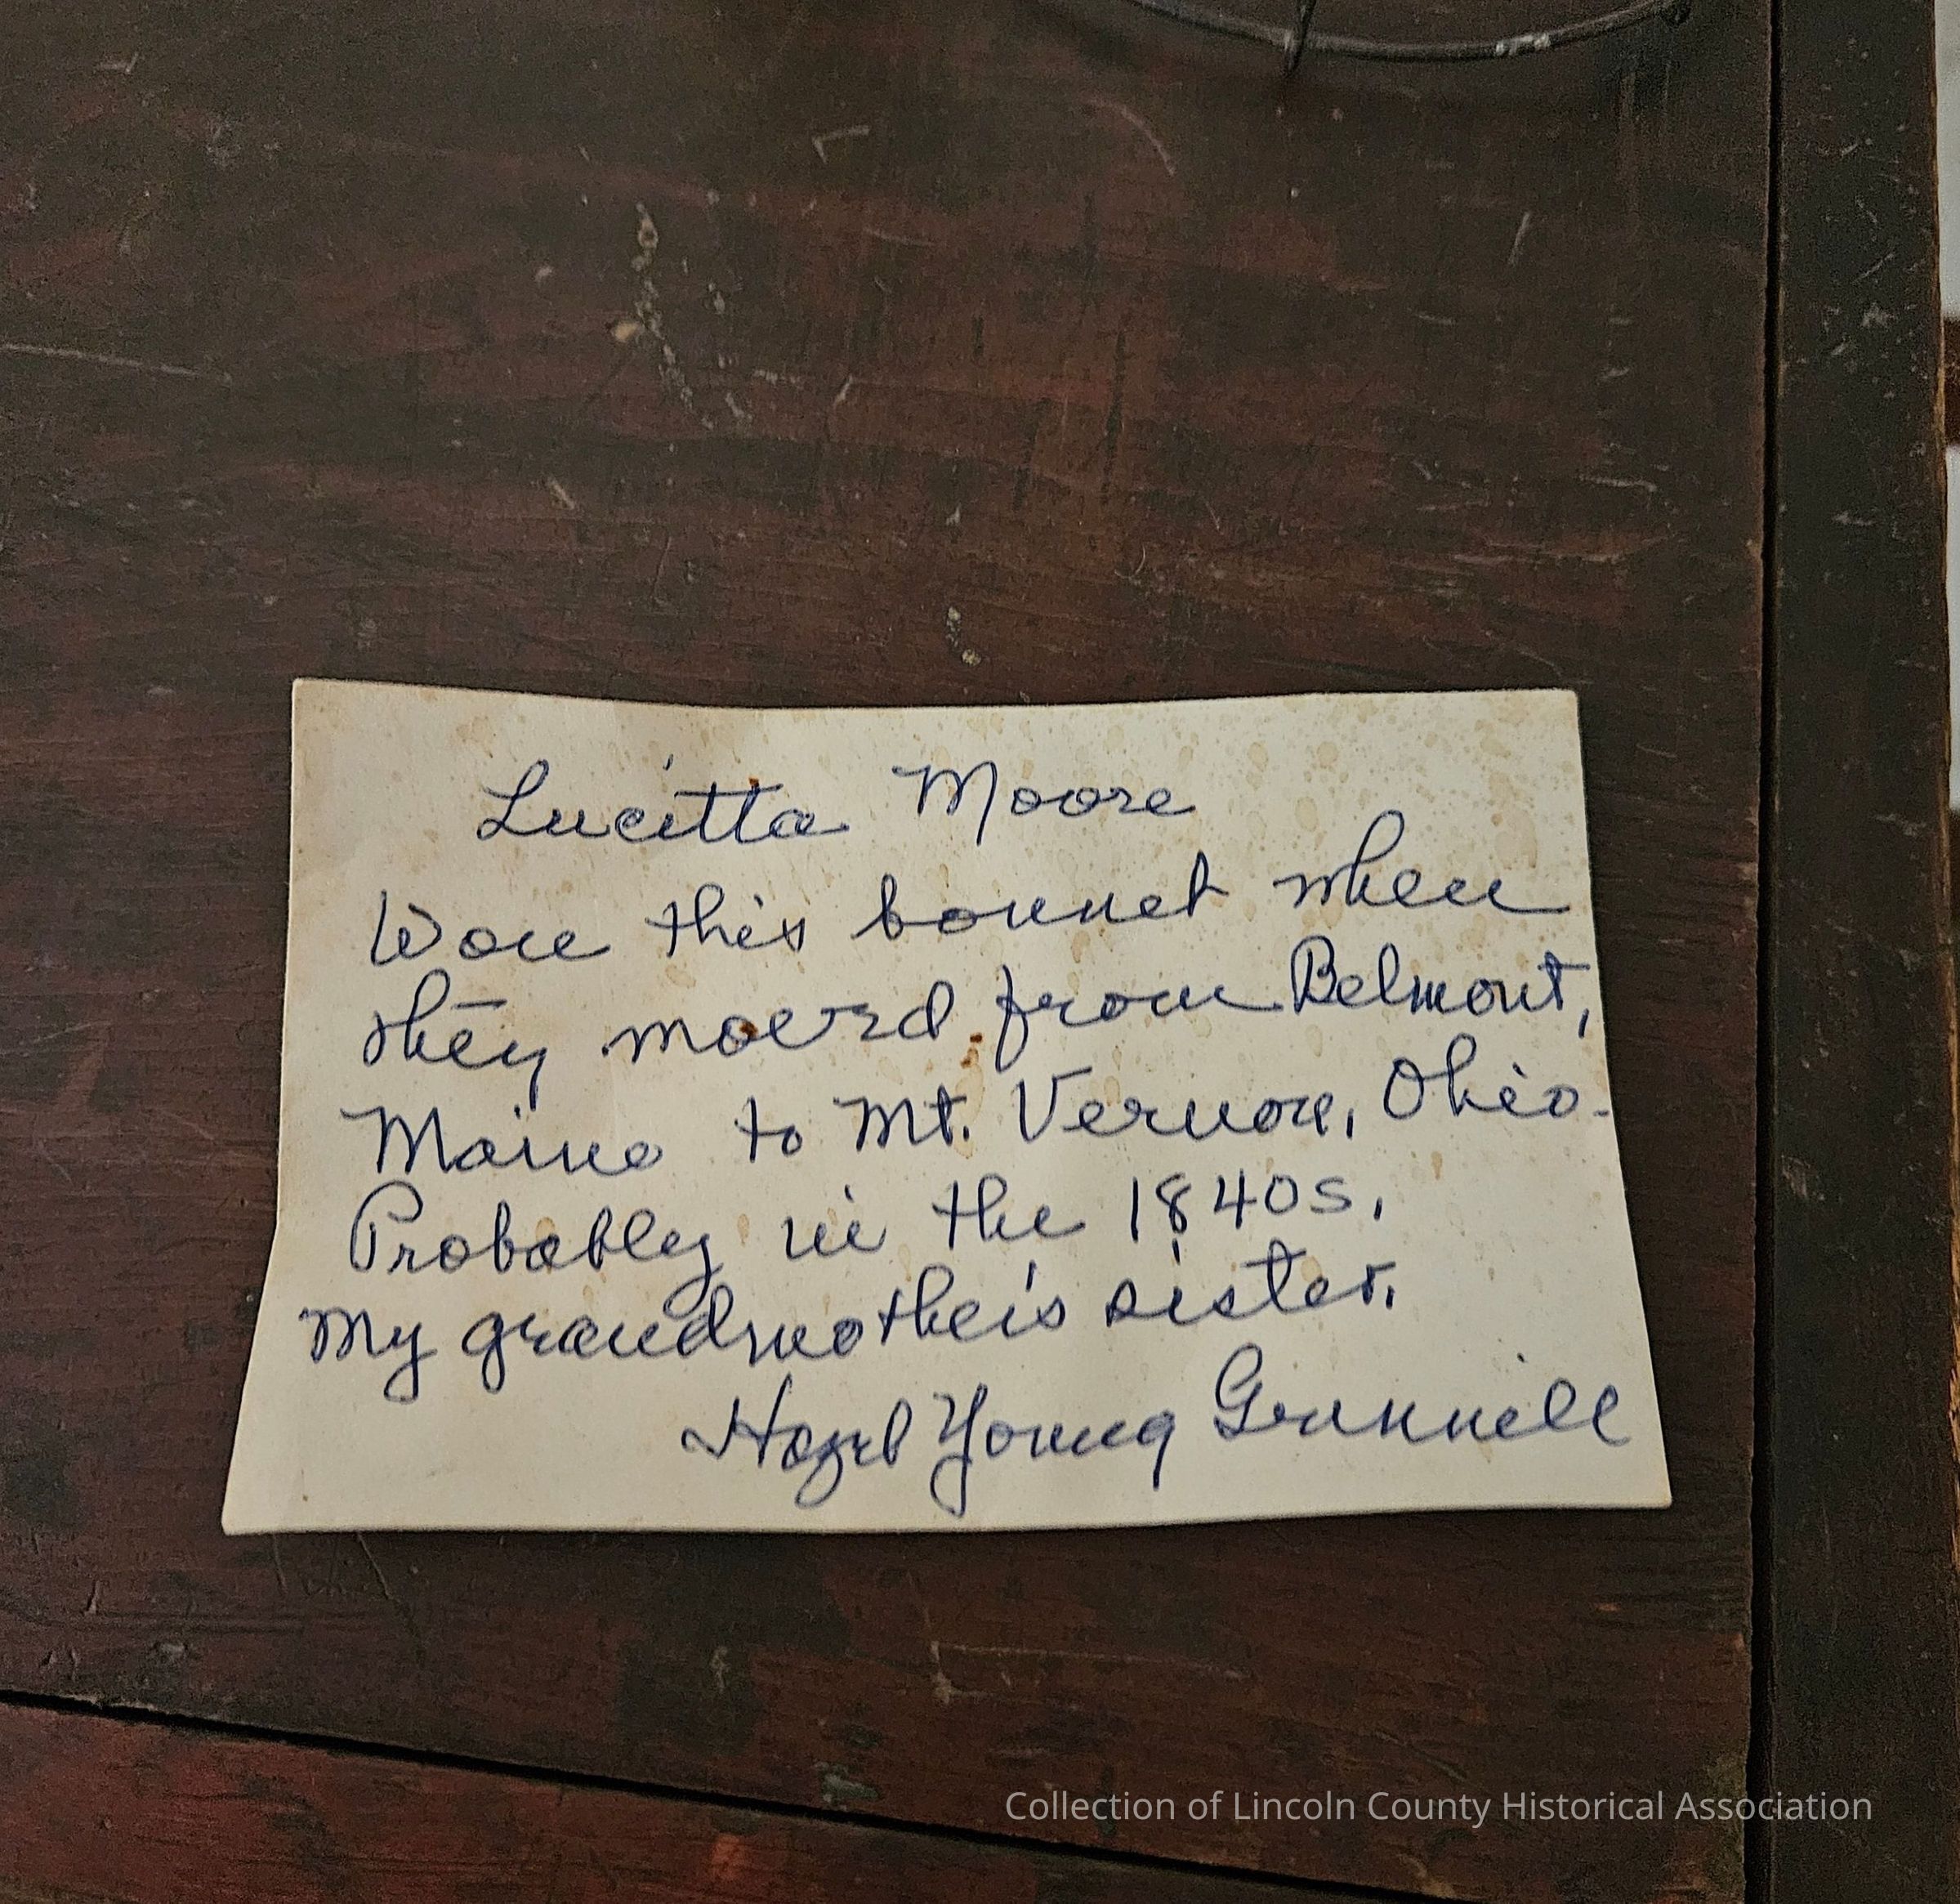 Lucitta Moore
Wore this bonnet when
they moved from Belmont,
Maine to Mt. Vernon, Ohio.
Probably in the 1840s.
My grandmother's sister.
Hazel Young Grinnell
Collection of Lincoln County Historical Association